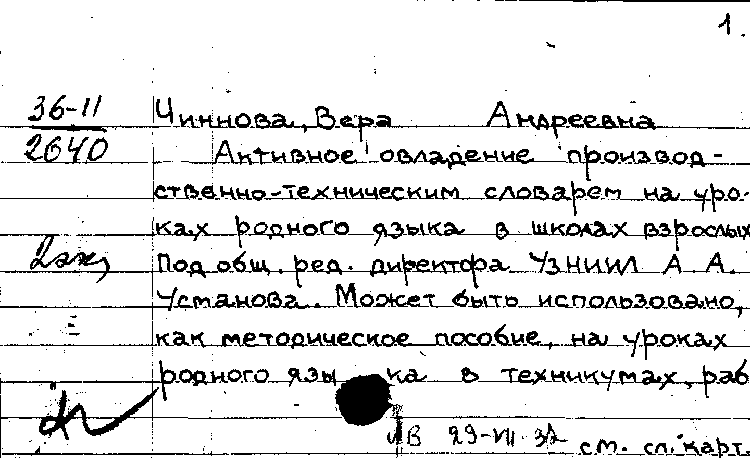 1.
36-11
2640
Чиннова, Вера Андреевна
Активное овладение производ-
ственно-техническим словарем на уро-
ках родного языка в школах взрослых
2экз
Под общ. ред. директора УзНИИЛ А. А.
Усманова. Может быть использовано,
как методическое пособие, на уроках
родного языка в техникумах, раб
В 29-VII-32 см. сл. карт.